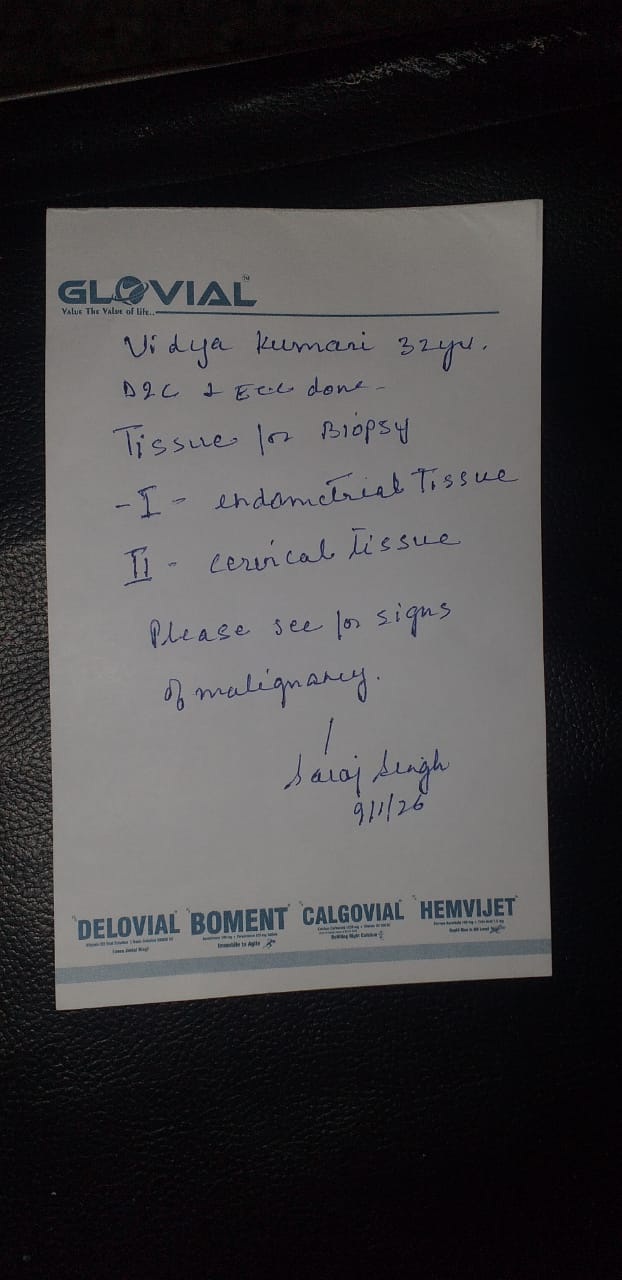 GLOVIAL
Value The Value of life..
Vidya Kumari 32yr.
D&C & ECC done -
Tissue for Biopsy
- I - endometrial Tissue
II - cervical Tissue
Please see for signs
of malignancy.
Saroj Singh
9/1/26
DELOVIAL BOMENT CALGOVIAL HEMVIJET